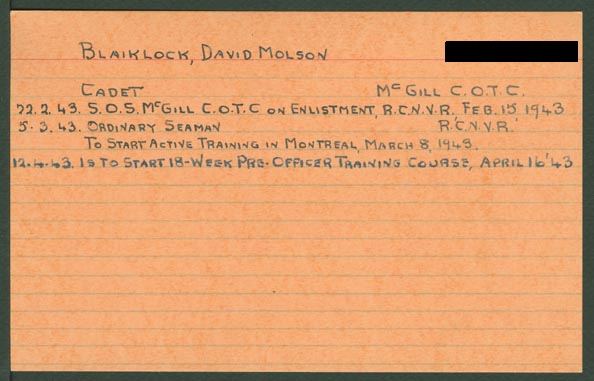 BLAIKLOCK, DAVID MOLSON
CADET McGILL C.O.T.C.
22.2.43. S.O.S. McGILL C.O.T.C ON ENLISTMENT, R.C.N.V.R. FEB. 15 1943
5.3.43. ORDINARY SEAMAN R.C.N.V.R.
TO START ACTIVE TRAINING IN MONTREAL, MARCH 8, 1943.
12.4.43. IS TO START 18-WEEK PRE-OFFICER TRAINING COURSE, APRIL 16 '43